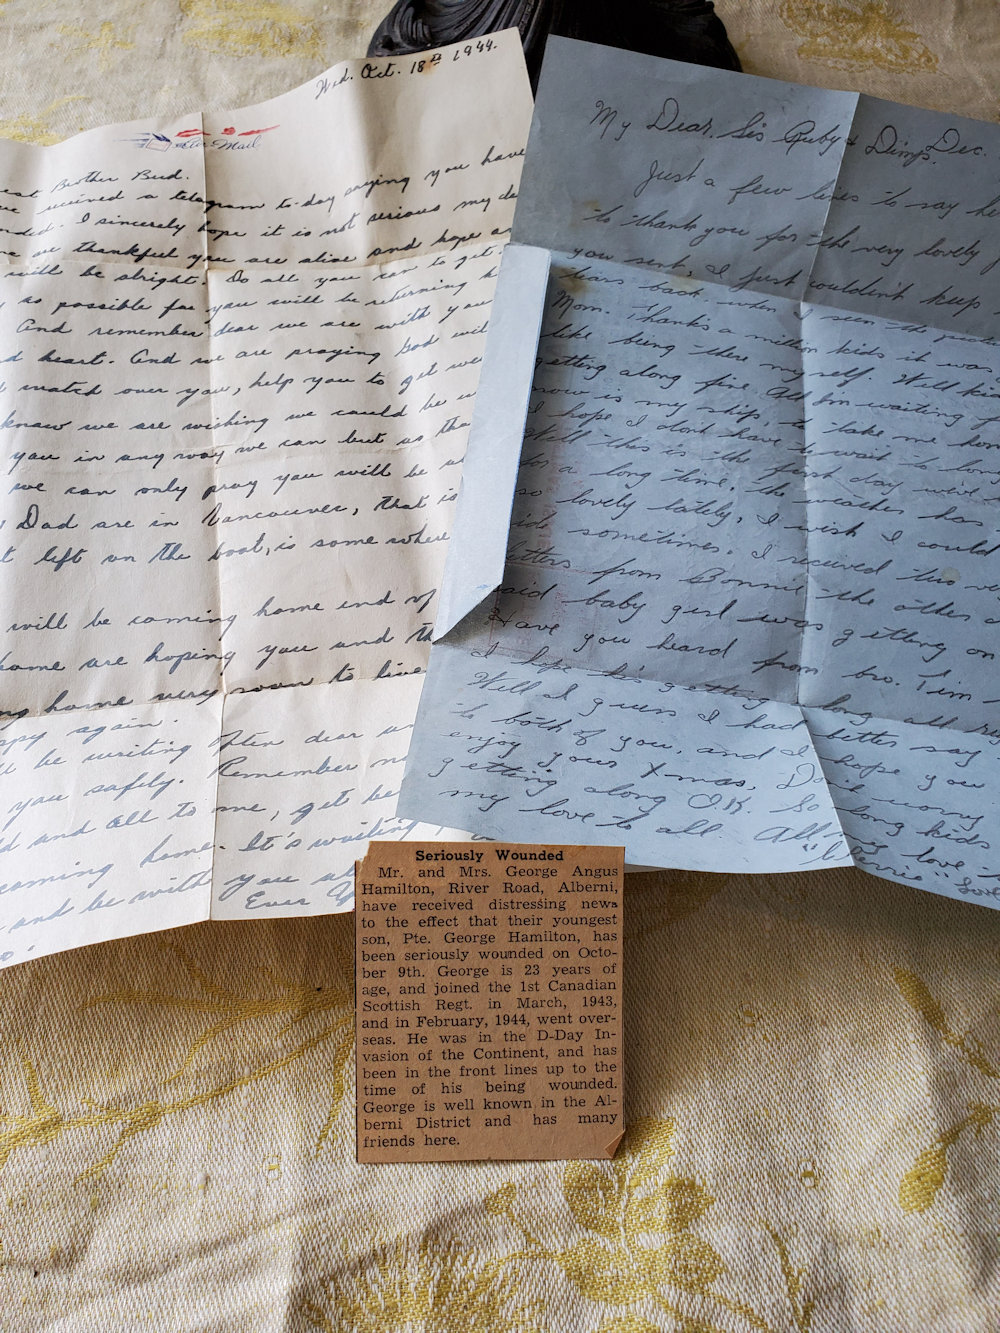 Wed. Oct. 18th 1944.
Air Mail
est Brother Bud.
ve received a telegram to-day saying you have
nded. I sincerely hope it is not serious my de
we are thankful you are alive and hope a
will be alright. Do all you can to get
so possible for you will be returning h
And remember dear we are with you
d heart. And we are praying God wil
d watch over you, help you to get we
know we are wishing we could be w
you in any way we can but as tha
we can only pray you will be w
Dad are in Vancouver, that is
t left on the boat, is some where
will be coming home end of
home are hoping you and th
ng home very soon to live
ppy again.
ll be writing often dear
you safely. Remember
d and all to me, get be
coming home. It's waiting
and be with you
Ever
My Dear Sis Ruby & Dimp. Dec.
Just a few lines to say he
to thank you for the very lovely
you sent, I just wouldn't keep
tears back when I seen the
Mom. Thanks a million kids it was
like being there my self. Well kid
getting along fine. All I'm waiting f
now is my ship, to take me hom
I hope I don't have to wait to long
Well this is the first day we've
for a long time, the weather has
so lovely lately, I wish I could
side sometimes. I received two
letters from Bonnie the other
said baby girl was getting on
Have you heard from bro. Tim
I hope he's getting along alright
Well I guess I had better say
to both of you, and I hope you
enjoy your Xmas, Don't worry
getting along O.K. So long kids
my love to all. All my love
Love
Seriously Wounded
Mr. and Mrs. George Angus
Hamilton, River Road, Alberni,
have received distressing news
to the effect that their youngest
son, Pte. George Hamilton, has
been seriously wounded on Octo-
ber 9th. George is 23 years of
age, and joined the 1st Canadian
Scottish Regt. in March, 1943,
and in February, 1944, went over-
seas. He was in the D-Day In-
vasion of the Continent, and has
been in the front lines up to the
time of his being wounded.
George is well known in the Al-
berni District and has many
friends here.